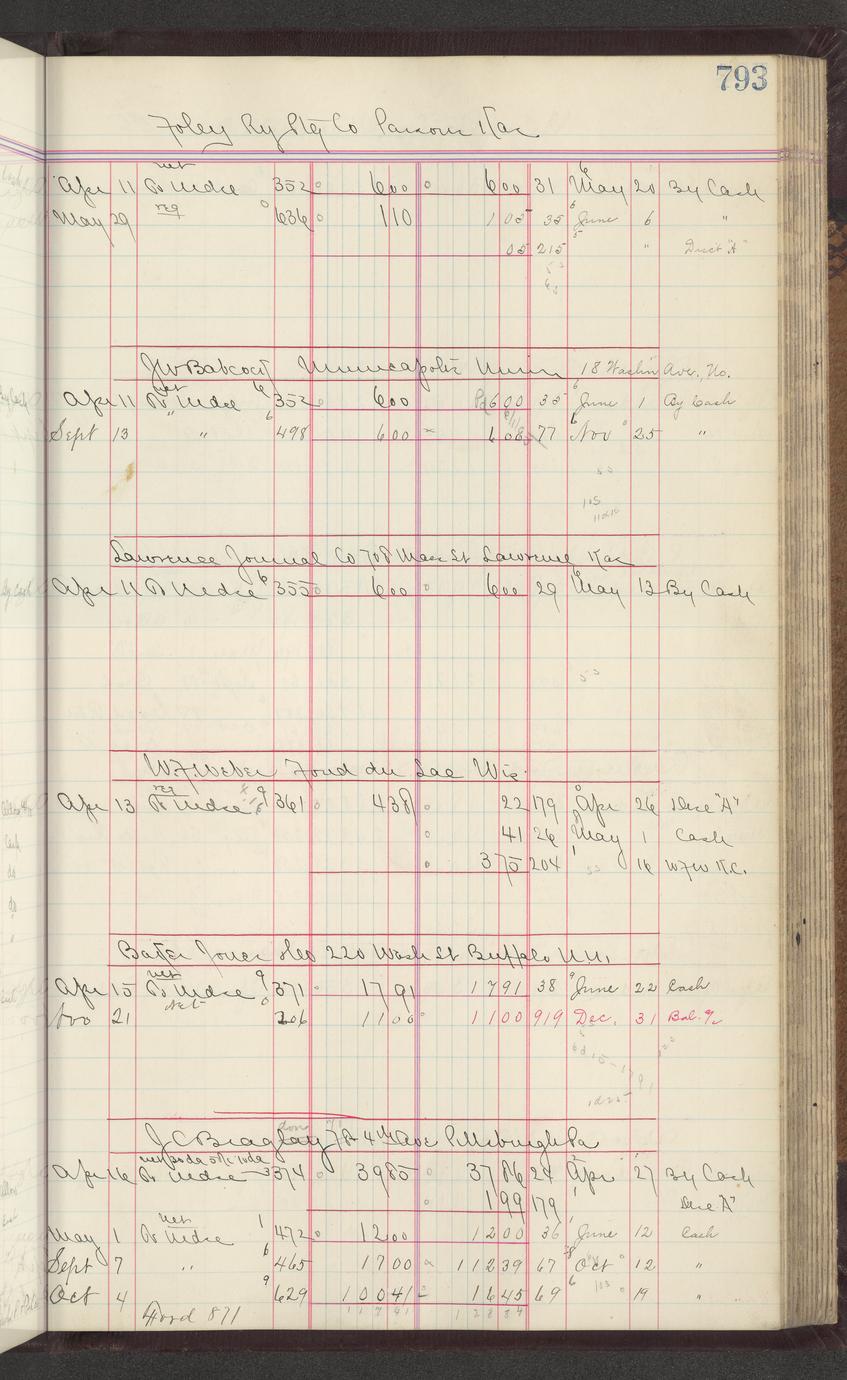 793
Foley Ry Ptg Co Parsons Kas
net
Apr 11 To Mdse 352 600 600 31 May 20 By Cash
May 29 reg 636 110 105 35 June 6 "
05 215 " Disct "A"
J W Babcock Minneapolis Minn 18 Washn Ave., No.
net
Apr 11 To Mdse 352 600 600 35 June 1 By Cash
Sept 13 " 498 600 608 77 Nov 25 "
Lawrence Journal Co 708 Mass St Lawrence Kas
Apr 11 To Mdse 355 600 600 29 May 13 By Cash
W F Weber Fond du Lac Wis.
reg
Apr 13 To Mdse 361 438 22 179 Apr 26 Disc "A"
41 26 May 1 Cash
375 204 " 16 W F W K.C.
220 Wash St Buffalo N.Y.
net
Apr 15 To Mdse 371 1791 1791 38 June 22 Cash
Nov 21 206 1100 1100 919 Dec. 31 Bal. %
78 4th Ave Pittsburgh Pa
Apr 16 To Mdse 374 3985 3786 24 Apr 27 By Cash
199 179 " Disc "A"
net
May 1 To Mdse 472 1200 1200 36 June 12 Cash
Sept 7 " 465 1700 11239 67 Oct 12 "
Oct 4 629 10041 1645 69 19 "
Ford 871